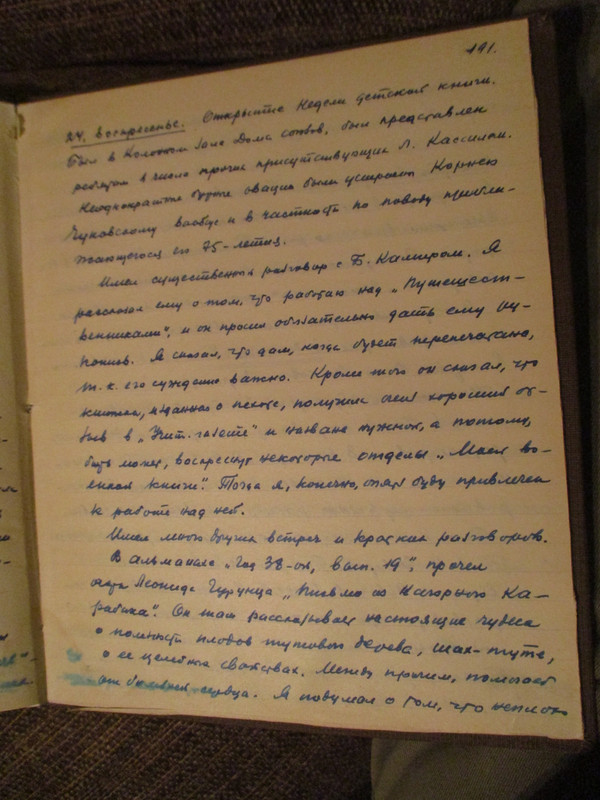 191.
24. воскресенье. Открытие Недели детской книги.
Был в Колонном зале Дома союзов, был представлен
ребятам в числе прочих присутствующих Л. Кассилем.
Неоднократные бурные овации были устроены Корнею
Чуковскому вообще и в частности по поводу прибли-
жающегося его 75-летия.
Имел существенный разговор с Б. Камиром. Я
рассказал ему о том, что работаю над „Путешест-
венниками", и он просил обязательно дать ему ру-
копись. Я сказал, что дам, когда будет перепечатано,
т.к. его суждение важно. Кроме того он сказал, что
книжка, изданная о пехоте, получила очень хороший от-
зыв в „Учит. газете" и названа нужной, а потому,
быть может, воскреснут некоторые отделы „Моей во-
енной книги". Тогда я, конечно, опять буду привлечен
к работе над ней.
Имел много других встреч и кратких разговоров.
В альманахе „Год 38-ой, вып. 19", прочел
очерк Леонида Гурунца „Письмо из Нагорного Ка-
рабаха". Он там рассказывает настоящие чудеса
о полезности плодов тутового дерева, шах-туте,
о ее целебных свойствах. Между прочим, помогает
от болезней сердца. Я подумал о том, что неплохо